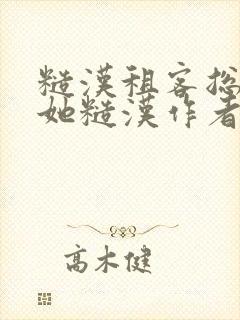 糙漢租客揔
她糙漢作者
高木健